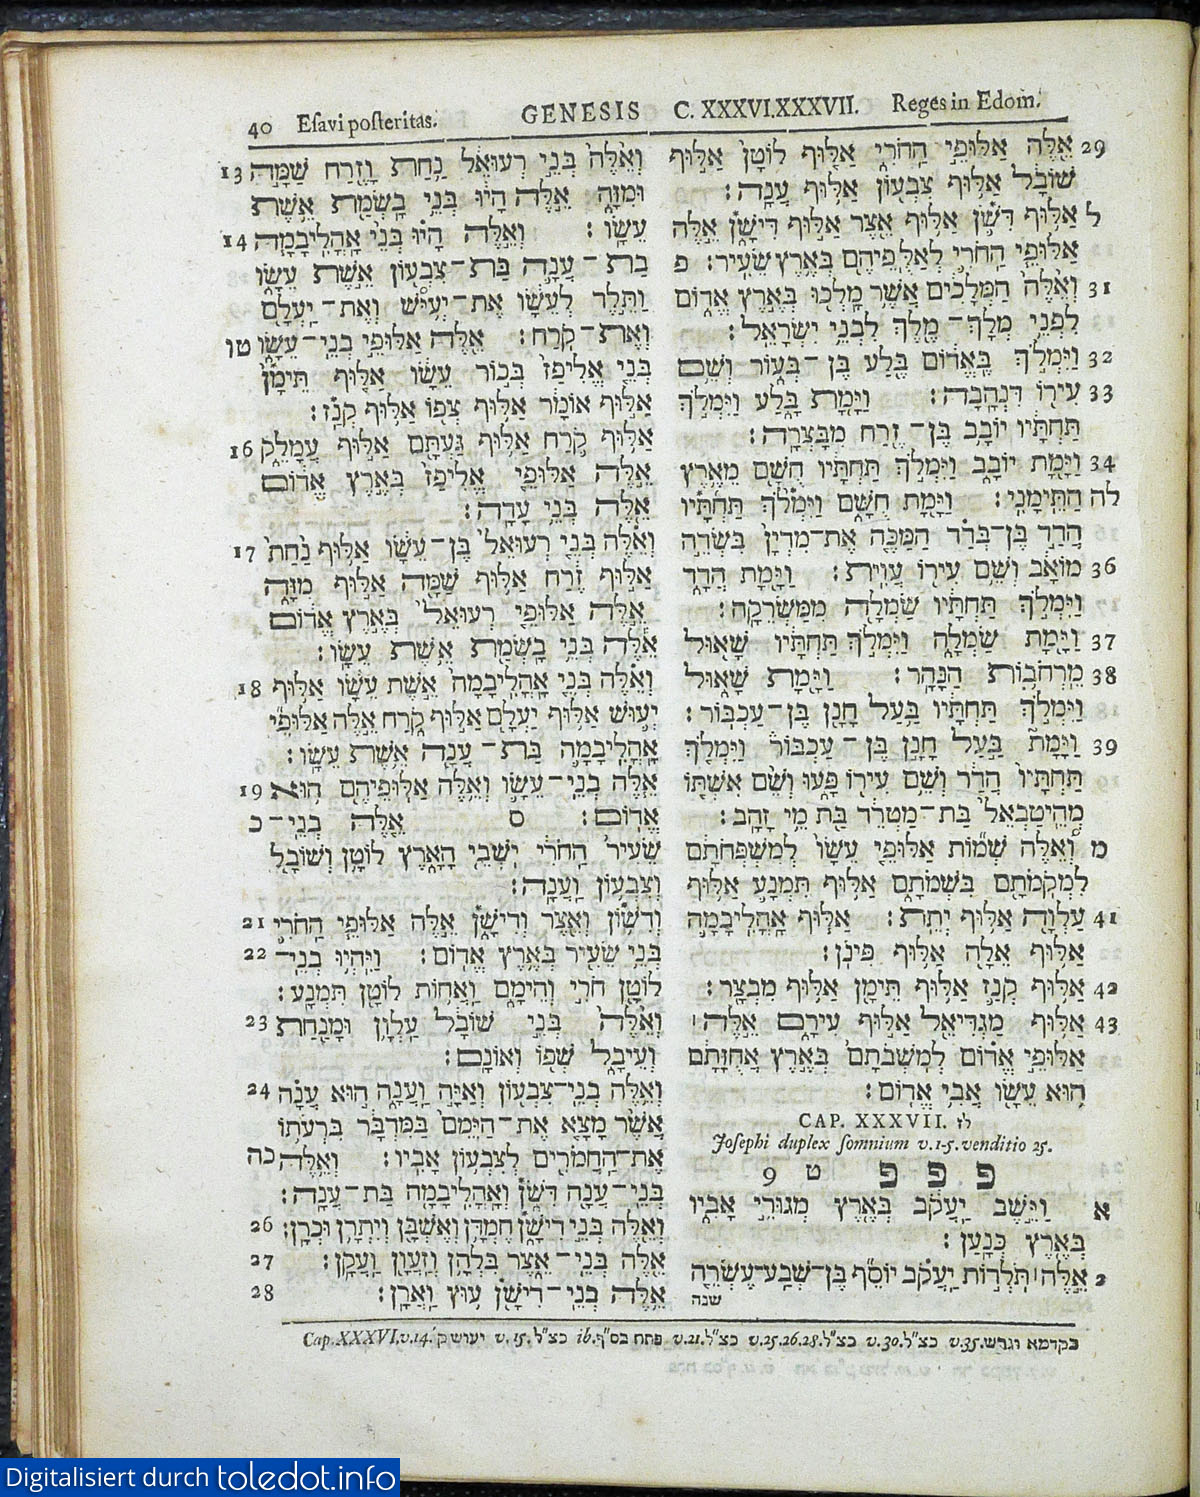 40 Esavi posteritas. GENESIS C. XXXVI.XXXVII. Reges in Edom.
13 וְאֵלֶּה בְּנֵי רְעוּאֵל נַחַת וָזֶרַח שַׁמָּה
וּמִזָּה אֵלֶּה הָיוּ בְּנֵי בָשְׂמַת אֵשֶׁת
14 עֵשָׂו׃ וְאֵלֶּה הָיוּ בְּנֵי אָהֳלִיבָמָה
בַת־עֲנָה בַּת־צִבְעוֹן אֵשֶׁת עֵשָׂו
וַתֵּלֶד לְעֵשָׂו אֶת־יְעִישׁ וְאֶת־יַעְלָם
טו וְאֶת־קֹרַח׃ אֵלֶּה אַלּוּפֵי בְנֵי־עֵשָׂו
בְּנֵי אֱלִיפַז בְּכוֹר עֵשָׂו אַלּוּף תֵּימָן
אַלּוּף אוֹמָר אַלּוּף צְפוֹ אַלּוּף קְנַז׃
16 אַלּוּף קֹרַח אַלּוּף גַּעְתָּם אַלּוּף עֲמָלֵק
אֵלֶּה אַלּוּפֵי אֱלִיפַז בְּאֶרֶץ אֱדוֹם
אֵלֶּה בְּנֵי עָדָה׃
17 וְאֵלֶּה בְּנֵי רְעוּאֵל בֶּן־עֵשָׂו אַלּוּף נַחַת
אַלּוּף זֶרַח אַלּוּף שַׁמָּה אַלּוּף מִזָּה
אֵלֶּה אַלּוּפֵי רְעוּאֵל בְּאֶרֶץ אֱדוֹם
אֵלֶּה בְּנֵי בָשְׂמַת אֵשֶׁת עֵשָׂו׃
18 וְאֵלֶּה בְּנֵי אָהֳלִיבָמָה אֵשֶׁת עֵשָׂו אַלּוּף
יְעוּשׁ אַלּוּף יַעְלָם אַלּוּף קֹרַח אֵלֶּה אַלּוּפֵי
אָהֳלִיבָמָה בַּת־עֲנָה אֵשֶׁת עֵשָׂו׃
19 אֵלֶּה בְנֵי־עֵשָׂו וְאֵלֶּה אַלּוּפֵיהֶם הוּא
כ אֱדוֹם׃ ס אֵלֶּה בְנֵי־
שֵׂעִיר הַחֹרִי יֹשְׁבֵי הָאָרֶץ לוֹטָן וְשׁוֹבָל
וְצִבְעוֹן וַעֲנָה׃
21 וְדִשׁוֹן וְאֵצֶר וְדִישָׁן אֵלֶּה אַלּוּפֵי הַחֹרִי
22 בְּנֵי שֵׂעִיר בְּאֶרֶץ אֱדוֹם׃ וַיִּהְיוּ בְנֵי־
לוֹטָן חֹרִי וְהֵימָם וַאֲחוֹת לוֹטָן תִּמְנָע׃
23 וְאֵלֶּה בְּנֵי שׁוֹבָל עַלְוָן וּמָנַחַת
וְעֵיבָל שְׁפוֹ וְאוֹנָם׃
24 וְאֵלֶּה בְנֵי־צִבְעוֹן וְאַיָּה וַעֲנָה הוּא עֲנָה
אֲשֶׁר מָצָא אֶת־הַיֵּמִם בַּמִּדְבָּר בִּרְעֹתוֹ
כה אֶת־הַחֲמֹרִים לְצִבְעוֹן אָבִיו׃ וְאֵלֶּה
בְנֵי־עֲנָה דִּשֹׁן וְאָהֳלִיבָמָה בַּת־עֲנָה׃
26 וְאֵלֶּה בְּנֵי דִישָׁן חֶמְדָּן וְאֶשְׁבָּן וְיִתְרָן וּכְרָן׃
27 אֵלֶּה בְּנֵי־אֵצֶר בִּלְהָן וְזַעֲוָן וַעֲקָן׃
28 אֵלֶּה בְנֵי־דִישָׁן עוּץ וַאֲרָן׃
29 אֵלֶּה אַלּוּפֵי הַחֹרִי אַלּוּף לוֹטָן אַלּוּף
שׁוֹבָל אַלּוּף צִבְעוֹן אַלּוּף עֲנָה׃
ל אַלּוּף דִּשֹׁן אַלּוּף אֵצֶר אַלּוּף דִּישָׁן אֵלֶּה
אַלּוּפֵי הַחֹרִי לְאַלֻּפֵיהֶם בְּאֶרֶץ שֵׂעִיר׃ פ
31 וְאֵלֶּה הַמְּלָכִים אֲשֶׁר מָלְכוּ בְּאֶרֶץ אֱדוֹם
לִפְנֵי מְלָךְ־מֶלֶךְ לִבְנֵי יִשְׂרָאֵל׃
32 וַיִּמְלֹךְ בֶּאֱדוֹם בֶּלַע בֶּן־בְּעוֹר וְשֵׁם
33 עִירוֹ דִּנְהָבָה׃ וַיָּמָת בָּלַע וַיִּמְלֹךְ
תַּחְתָּיו יוֹבָב בֶּן־זֶרַח מִבָּצְרָה׃
34 וַיָּמָת יוֹבָב וַיִּמְלֹךְ תַּחְתָּיו חֻשָׁם מֵאֶרֶץ
לה הַתֵּימָנִי׃ וַיָּמָת חֻשָׁם וַיִּמְלֹךְ תַּחְתָּיו
הֲדַד בֶּן־בְּדַד הַמַּכֶּה אֶת־מִדְיָן בִּשְׂדֵה
36 מוֹאָב וְשֵׁם עִירוֹ עֲוִית׃ וַיָּמָת הֲדָד
וַיִּמְלֹךְ תַּחְתָּיו שַׂמְלָה מִמַּשְׂרֵקָה׃
37 וַיָּמָת שַׂמְלָה וַיִּמְלֹךְ תַּחְתָּיו שָׁאוּל
38 מֵרְחֹבוֹת הַנָּהָר׃ וַיָּמָת שָׁאוּל
וַיִּמְלֹךְ תַּחְתָּיו בַּעַל חָנָן בֶּן־עַכְבּוֹר׃
39 וַיָּמָת בַּעַל חָנָן בֶּן־עַכְבּוֹר וַיִּמְלֹךְ
תַּחְתָּיו הֲדַר וְשֵׁם עִירוֹ פָּעוּ וְשֵׁם אִשְׁתּוֹ
מְהֵיטַבְאֵל בַּת־מַטְרֵד בַּת מֵי זָהָב׃
מ וְאֵלֶּה שְׁמוֹת אַלּוּפֵי עֵשָׂו לְמִשְׁפְּחֹתָם
לִמְקֹמֹתָם בִּשְׁמֹתָם אַלּוּף תִּמְנָע אַלּוּף
41 עַלְוָה אַלּוּף יְתֵת׃ אַלּוּף אָהֳלִיבָמָה
אַלּוּף אֵלָה אַלּוּף פִּינֹן׃
42 אַלּוּף קְנַז אַלּוּף תֵּימָן אַלּוּף מִבְצָר׃
43 אַלּוּף מַגְדִּיאֵל אַלּוּף עִירָם אֵלֶּה׀
אַלּוּפֵי אֱדוֹם לְמֹשְׁבֹתָם בְּאֶרֶץ אֲחֻזָּתָם
הוּא עֵשָׂו אֲבִי אֱדוֹם׃
CAP. XXXVII. לז
Josephi duplex somnium v. 1-5. venditio 25.
פ פ פ ט 9
א וַיֵּשֶׁב יַעֲקֹב בְּאֶרֶץ מְגוּרֵי אָבִיו
בְּאֶרֶץ כְּנָעַן׃
2 אֵלֶּה׀ תֹּלְדוֹת יַעֲקֹב יוֹסֵף בֶּן־שְׁבַע־עֶשְׂרֵה
שנה
Cap. XXXVI. v. 14. יעוש ק׳ v. 15. כצ״ל ib. פתח בס״ף v. 21. כצ״ל v. 25. 26. 28. כצ״ל v. 30. כצ״ל v. 35. בקדמא וגרש
Digitalisiert durch toledot.info